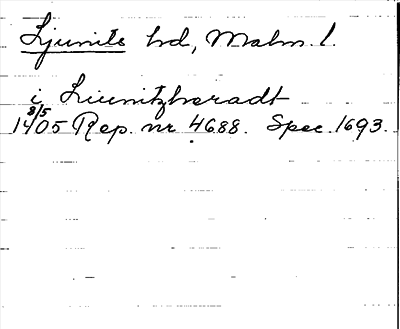 Ljunits hd, Malm. l.
i Liunitzhæradt
8/5
1405 Rep. nr 4688. Spec. 1693.